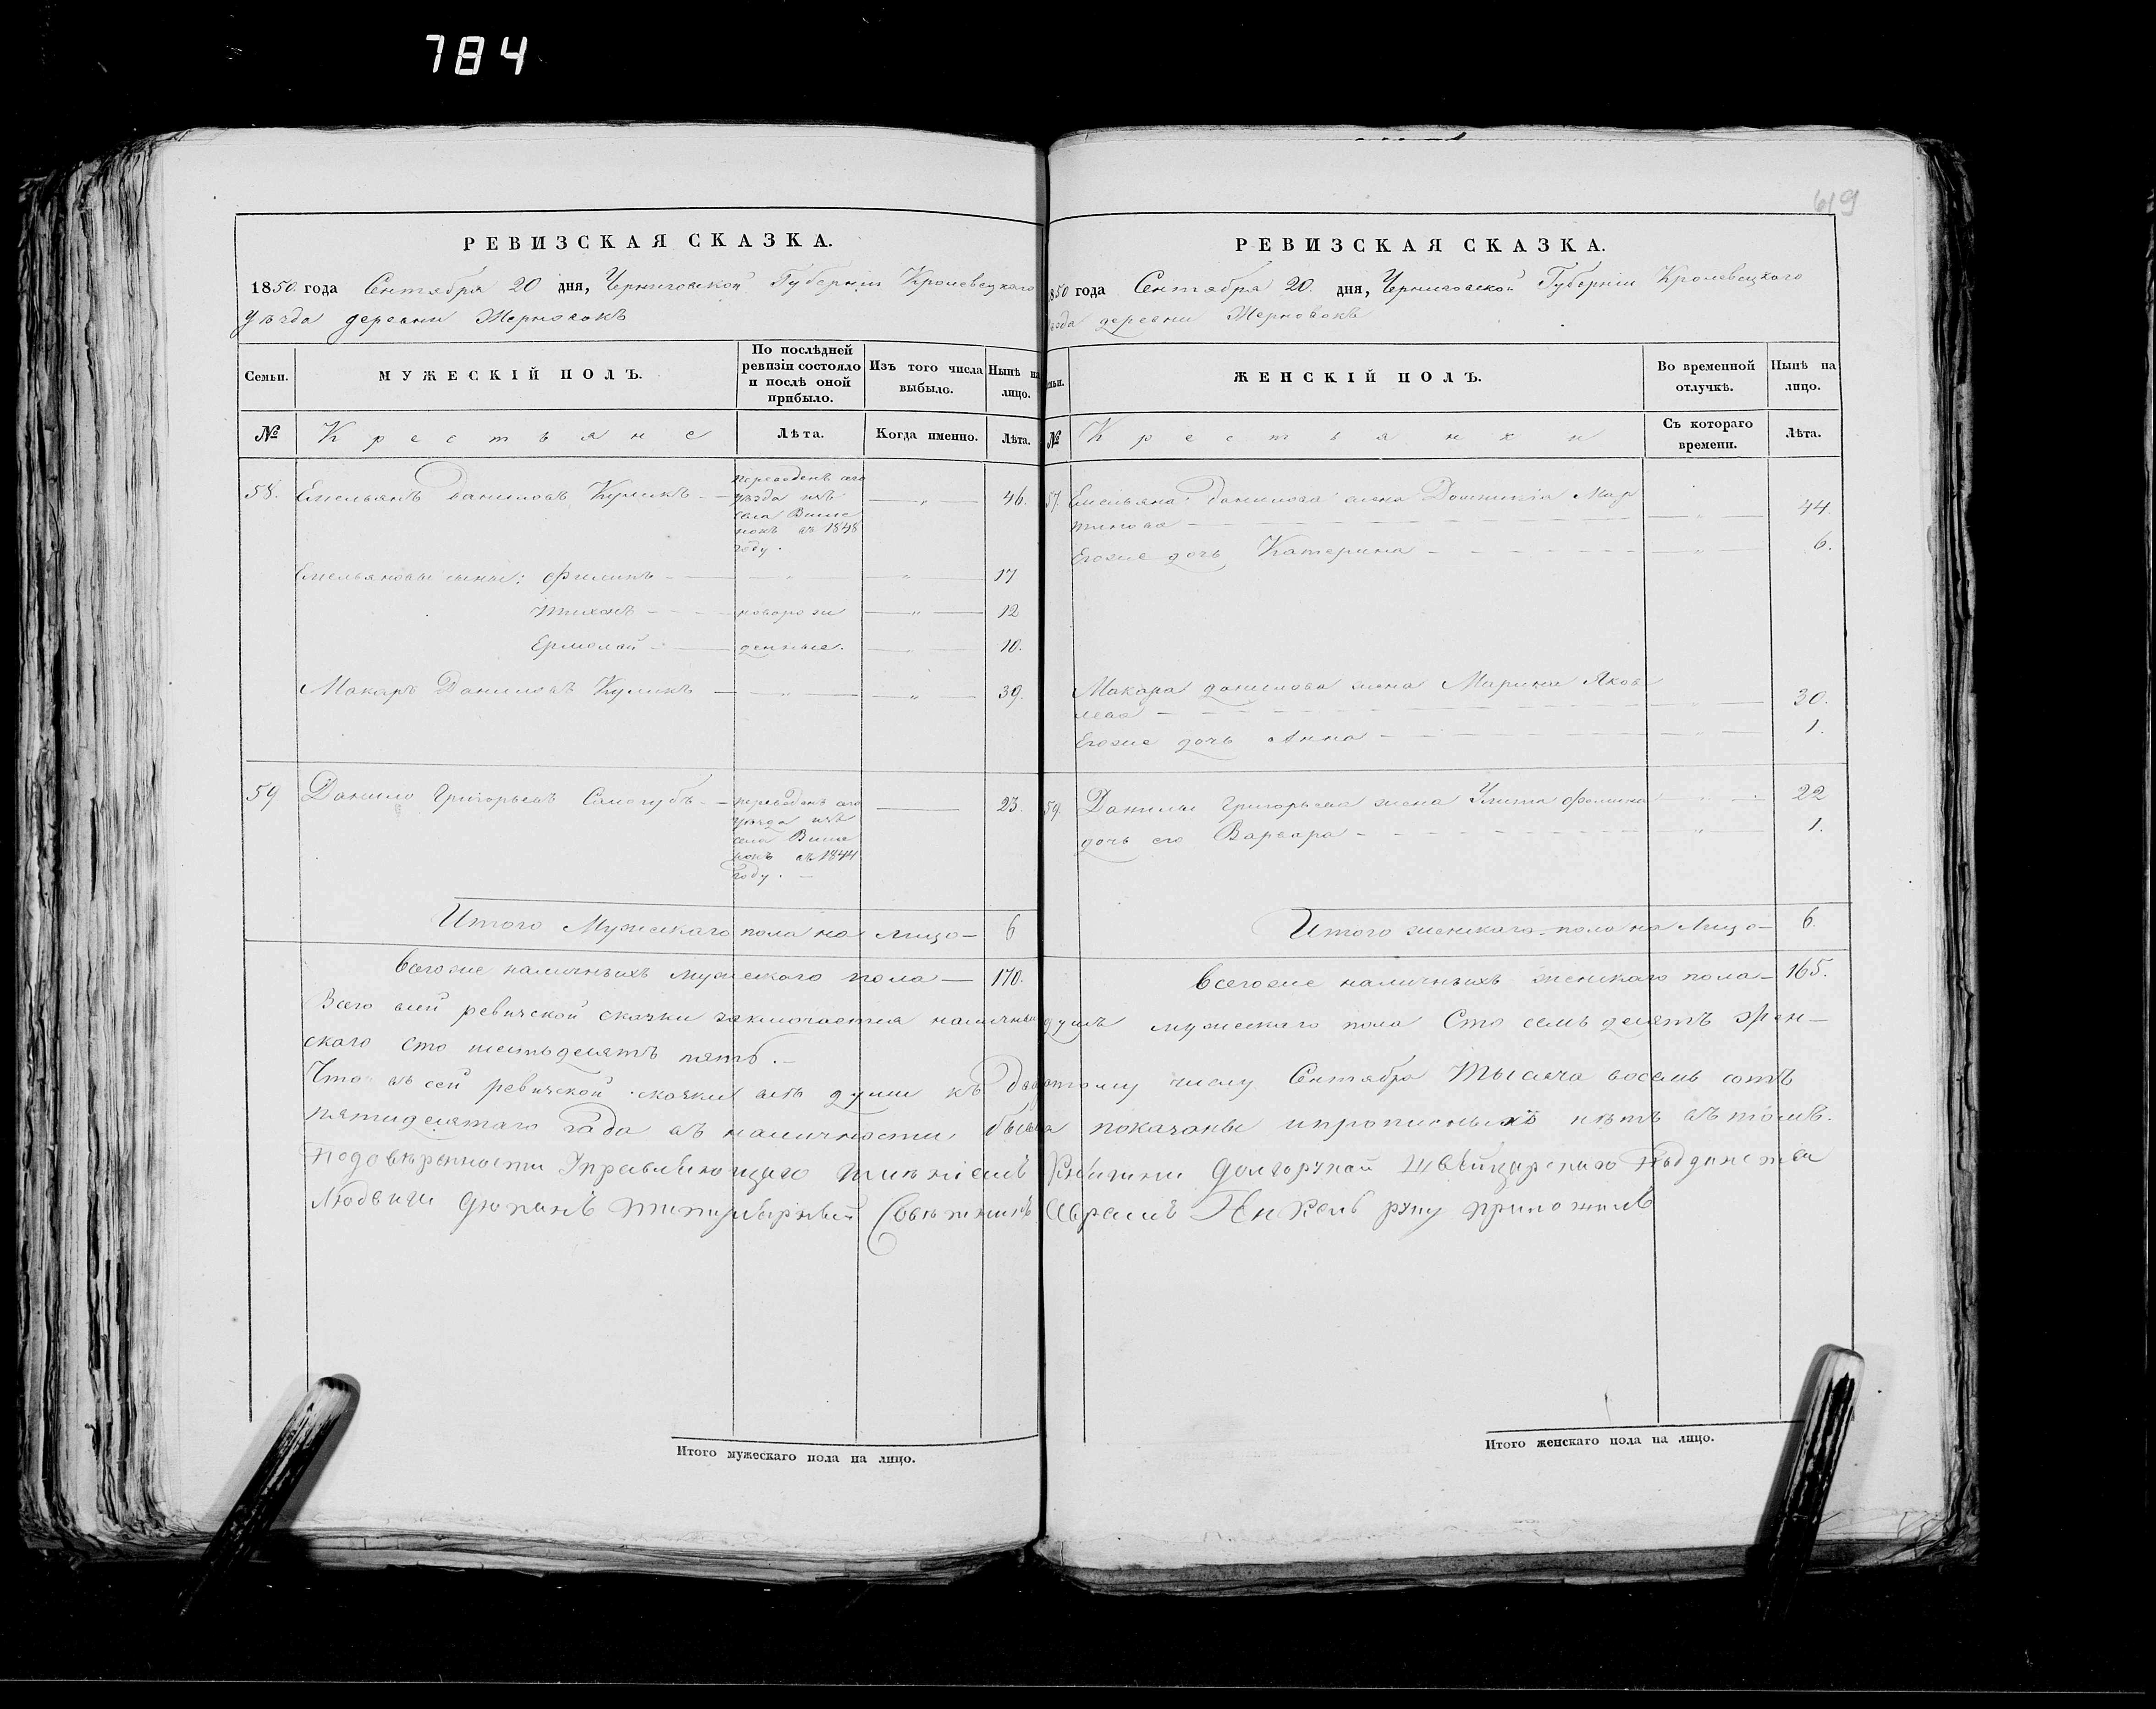 784
619
РЕВИЗСКАЯ СКАЗКА.
1850 года Сентября 20 дня, Черниговской Губерніи Кролевецкаго
Уѣзда деревни Жерновокъ
Семьи.
МУЖЕСКІЙ ПОЛЪ.
По послѣдней ревизіи состояло и послѣ оной прибыло.
Изъ того числа выбыло.
Нынѣ на лицо.
№
Крестьяне
Лѣта.
Когда именно.
Лѣта.
58. Емельянъ Даниловъ Куликъ — переведенъ сего — „ — 46.
уѣзда изъ
села
въ 1848
году.
Емельяновы сыны: Филипъ — „ — „ — 17
Тихонъ — новорож — „ — 12
Ермолай — денные. — „ — 10.
Макаръ Даниловъ Куликъ — „ — „ — 39.
59 Данило Григорьевъ Самогубъ — переведенъ сего — 23.
уѣзда изъ
села
въ 1844
году. —
Итого Мужескаго пола на лицо — 6
Всегоже наличныхъ мужескаго пола — 170.
РЕВИЗСКАЯ СКАЗКА.
1850 года Сентября 20. дня, Черниговской Губерніи Кролевецкаго
уѣзда деревни Жерновокъ
Семьи.
ЖЕНСКІЙ ПОЛЪ.
Во временной отлучкѣ.
Нынѣ на лицо.
№
Крестьянки
Съ котораго времени.
Лѣта.
Емельяна Данилова жена Домникія Мар
тинова — „ — 44
Егоже дочь Катерина — „ — 6.
Макара Данилова жена Марина Яков
лева — „ — 30.
Егоже дочь Анна — „ — 1.
59. Данилы Григорьева жена Улита Фомина „ 22
дочь его Варвара — „ — 1.
Итого женскаго пола на лицо — 6
Всегоже наличныхъ женскаго пола — 165.
Всего сей ревизской сказки заключается наличныхъ душъ мужескаго пола Сто семьдесятъ Жен—
скаго сто шестьдесятъ пять. —
Что въ сей ревизской сказки всѣ души къ числу Сентября Тысяча восемь сотъ
пятидесятаго года въ наличности показаны и прописныхъ нѣтъ въ томъ.
По довѣренности Управляющаго имѣніемъ Княгини Долгорукой Швейцарскаго
Людвиги Титулярный Совѣтникъ руку приложилъ
Итого мужескаго пола на лицо.
Итого женскаго пола на лицо.